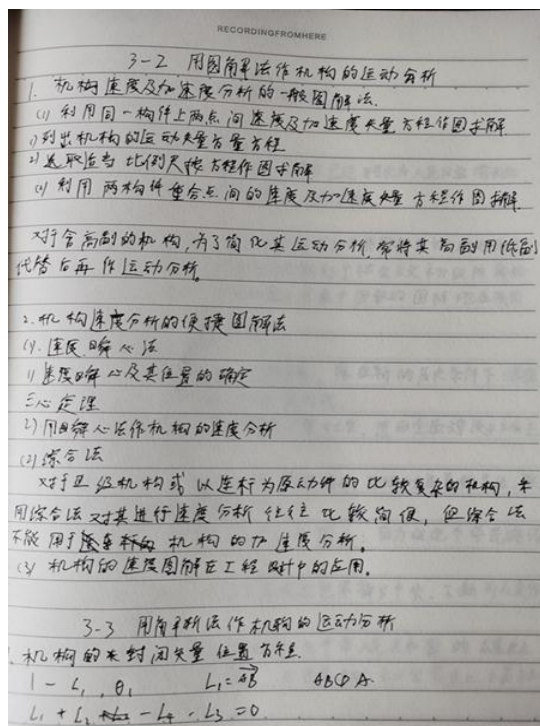 RECORDINGFROMHERE
3-2 用图解法作机构的运动分析
1. 机构速度及加速度分析的一般图解法.
(1) 利用同一构件上两点间速度及加速度矢量方程作图求解
1) 列出机构的运动矢量方程
2) 选取适当比例尺按方程作图求解
(2) 利用两构件重合点间的速度及加速度矢量方程作图求解.
对于含高副的机构,为了简化其运动分析,常将其高副用低副
代替后再作运动分析。
2. 机构速度分析的便捷图解法
(1). 速度瞬心法
1) 速度瞬心及其位置的确定
三心定理
2) 用瞬心法作机构的速度分析
(2) 综合法
对于Ⅲ级机构或以连杆为原动件的比较复杂的机构,采
用综合法对其进行速度分析往往比较简便,但综合法
不能用于机构的加速度分析。
(3) 机构的速度图解在工程设计中的应用。
3-3 用解析法作机构的运动分析
1. 机构的封闭矢量位置方程.
1 - L₁, θ₁ L₁ = AB ABCD A.
L₁ + L₂ - L₄ - L₃ = 0